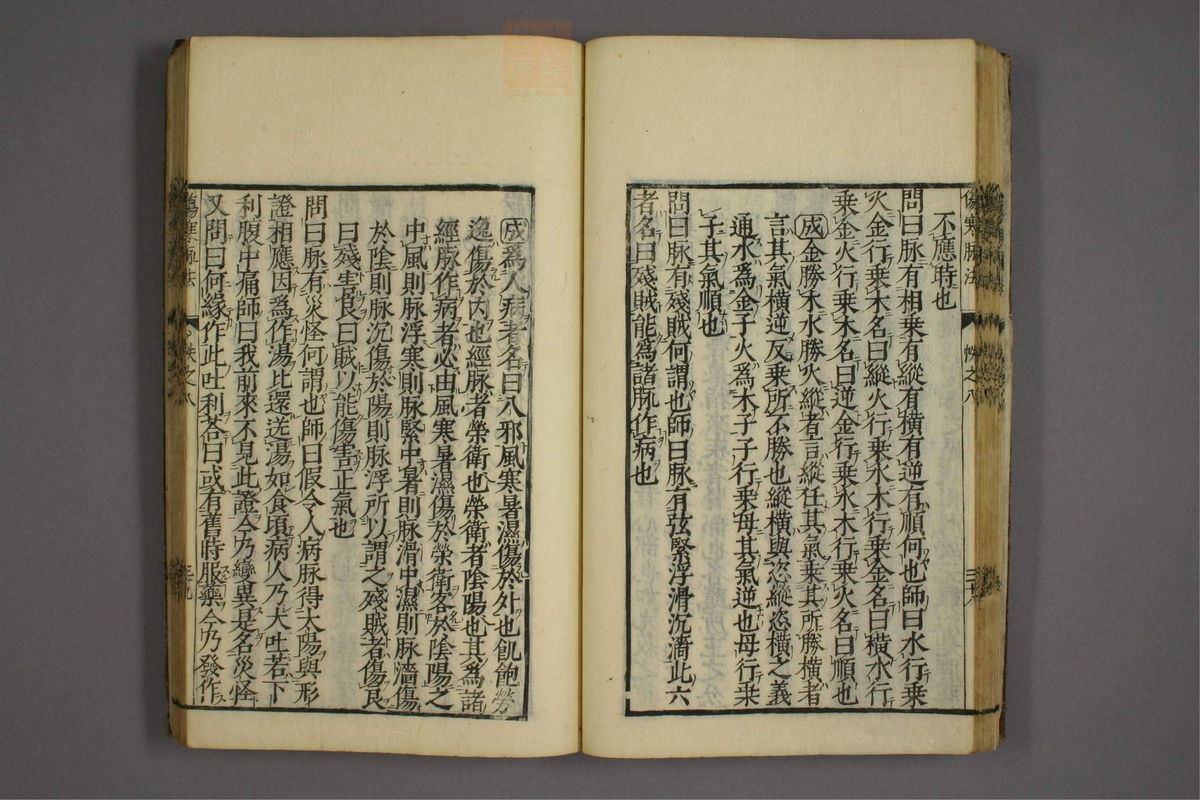 不應時也
問曰脈有相乘有縱有橫有逆有順何也師曰水行乘
火金行乘木名曰縱火行乘水木行乘金名曰橫水行
乘金火行乘木名曰逆金行乘水木行乘火名曰順也
成金勝木水勝火縱者言縱任其氣乘其所勝橫者
言其氣橫逆反乘所不勝也縱橫與恣縱恣橫之義
通水為金子火為木子子行乘母其氣逆也母行乘
子其氣順也
問曰脈有殘賊何謂也師曰脈有弦緊浮滑沉濇此六
者名曰殘賊能為諸脈作病也
傷寒脈法
帙之八
三十八
成爲人病者名曰八邪風寒暑濕傷於外也飢飽勞
逸傷於內也經脈者榮衛也榮衛者陰陽也其為諸
經脈作病者必由風寒暑濕傷於榮衛客於陰陽之
中風則脈浮寒則脈緊中暑則脈滑中濕則脈濇傷
於陰則脈沉傷於陽則脈浮所以謂之殘賊者傷良
曰殘害良曰賊以能傷害正氣也
問曰脈有災怪何謂也師曰假令人病脈得太陽與形
證相應因為作湯比還送湯如食頃病人乃大吐若下
利腹中痛師曰我前來不見此證今乃變異是名災怪
又問曰何緣作此吐利荅曰或有舊時服藥今乃發作
傷寒脈法
帙之八
三十九